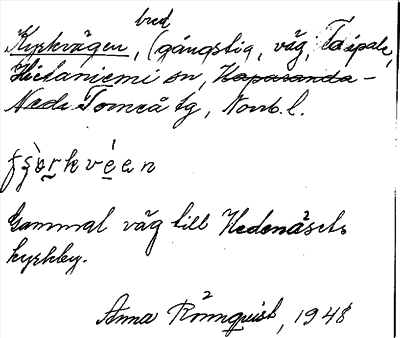 bred
Kyrkvägen, (gångstig, väg, Taipale,
Hietaniemi sn, Haparanda-
Nedt Torneå tg, Norrb. l.
Gammal väg till Hedenäsets
kyrkby.
Anna Rönnquist, 1948